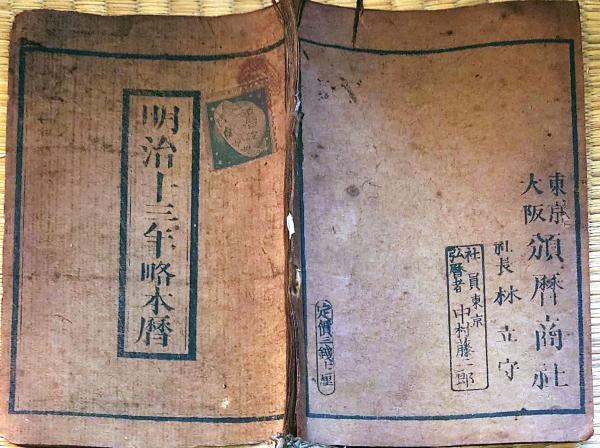 東京
大阪
頒暦商社
社長 林立守
社員東京
弘暦者 中村藤二郎
定價三銭二厘
明治十三年略本暦